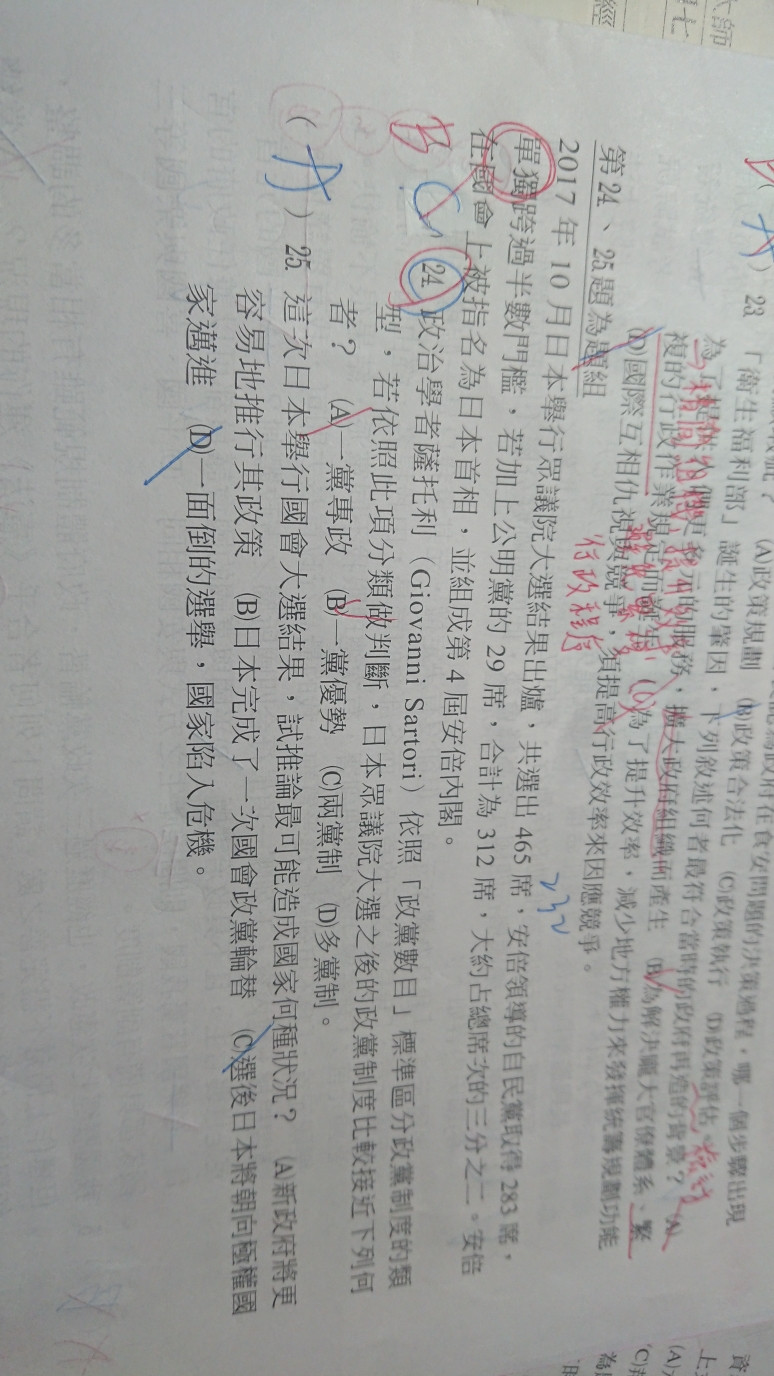 大師
七
經
(A)政策規劃 (B)政策合法化 (C)政策執行 (D)政策評估
B
( A ) 23. 「衛生福利部」誕生的肇因，下列敘述何者最符合當時的政府再造的背景？ (A)
為了提供 更多元的服務，擴大政府組織而產生 (B)為解決龐大官僚體系、繁
複的行政作業規定而誕生 (C)為了提升效率，減少地方權力來發揮統籌規劃功能
(D)國際互相仇視與競爭，須提高行政效率來因應競爭。
行政程序
第 24、25 題為題組
232
2017 年 10 月日本舉行眾議院大選結果出爐，共選出 465 席，安倍領導的自民黨取得 283 席，
單獨跨過半數門檻，若加上公明黨的 29 席，合計為 312 席，大約占總席次的三分之二。安倍
在國會上被指名為日本首相，並組成第 4 屆安倍內閣。
B C 24. 政治學者薩托利（Giovanni Sartori）依照「政黨數目」標準區分政黨制度的類
型，若依照此項分類做判斷，日本眾議院大選之後的政黨制度比較接近下列何
者？ (A)一黨專政 (B)一黨優勢 (C)兩黨制 (D)多黨制。
( A ) 25. 這次日本舉行國會大選結果，試推論最可能造成國家何種狀況？ (A)新政府將更
容易地推行其政策 (B)日本完成了一次國會政黨輪替 (C)選後日本將朝向極權國
家邁進 (D)一面倒的選舉，國家陷入危機。